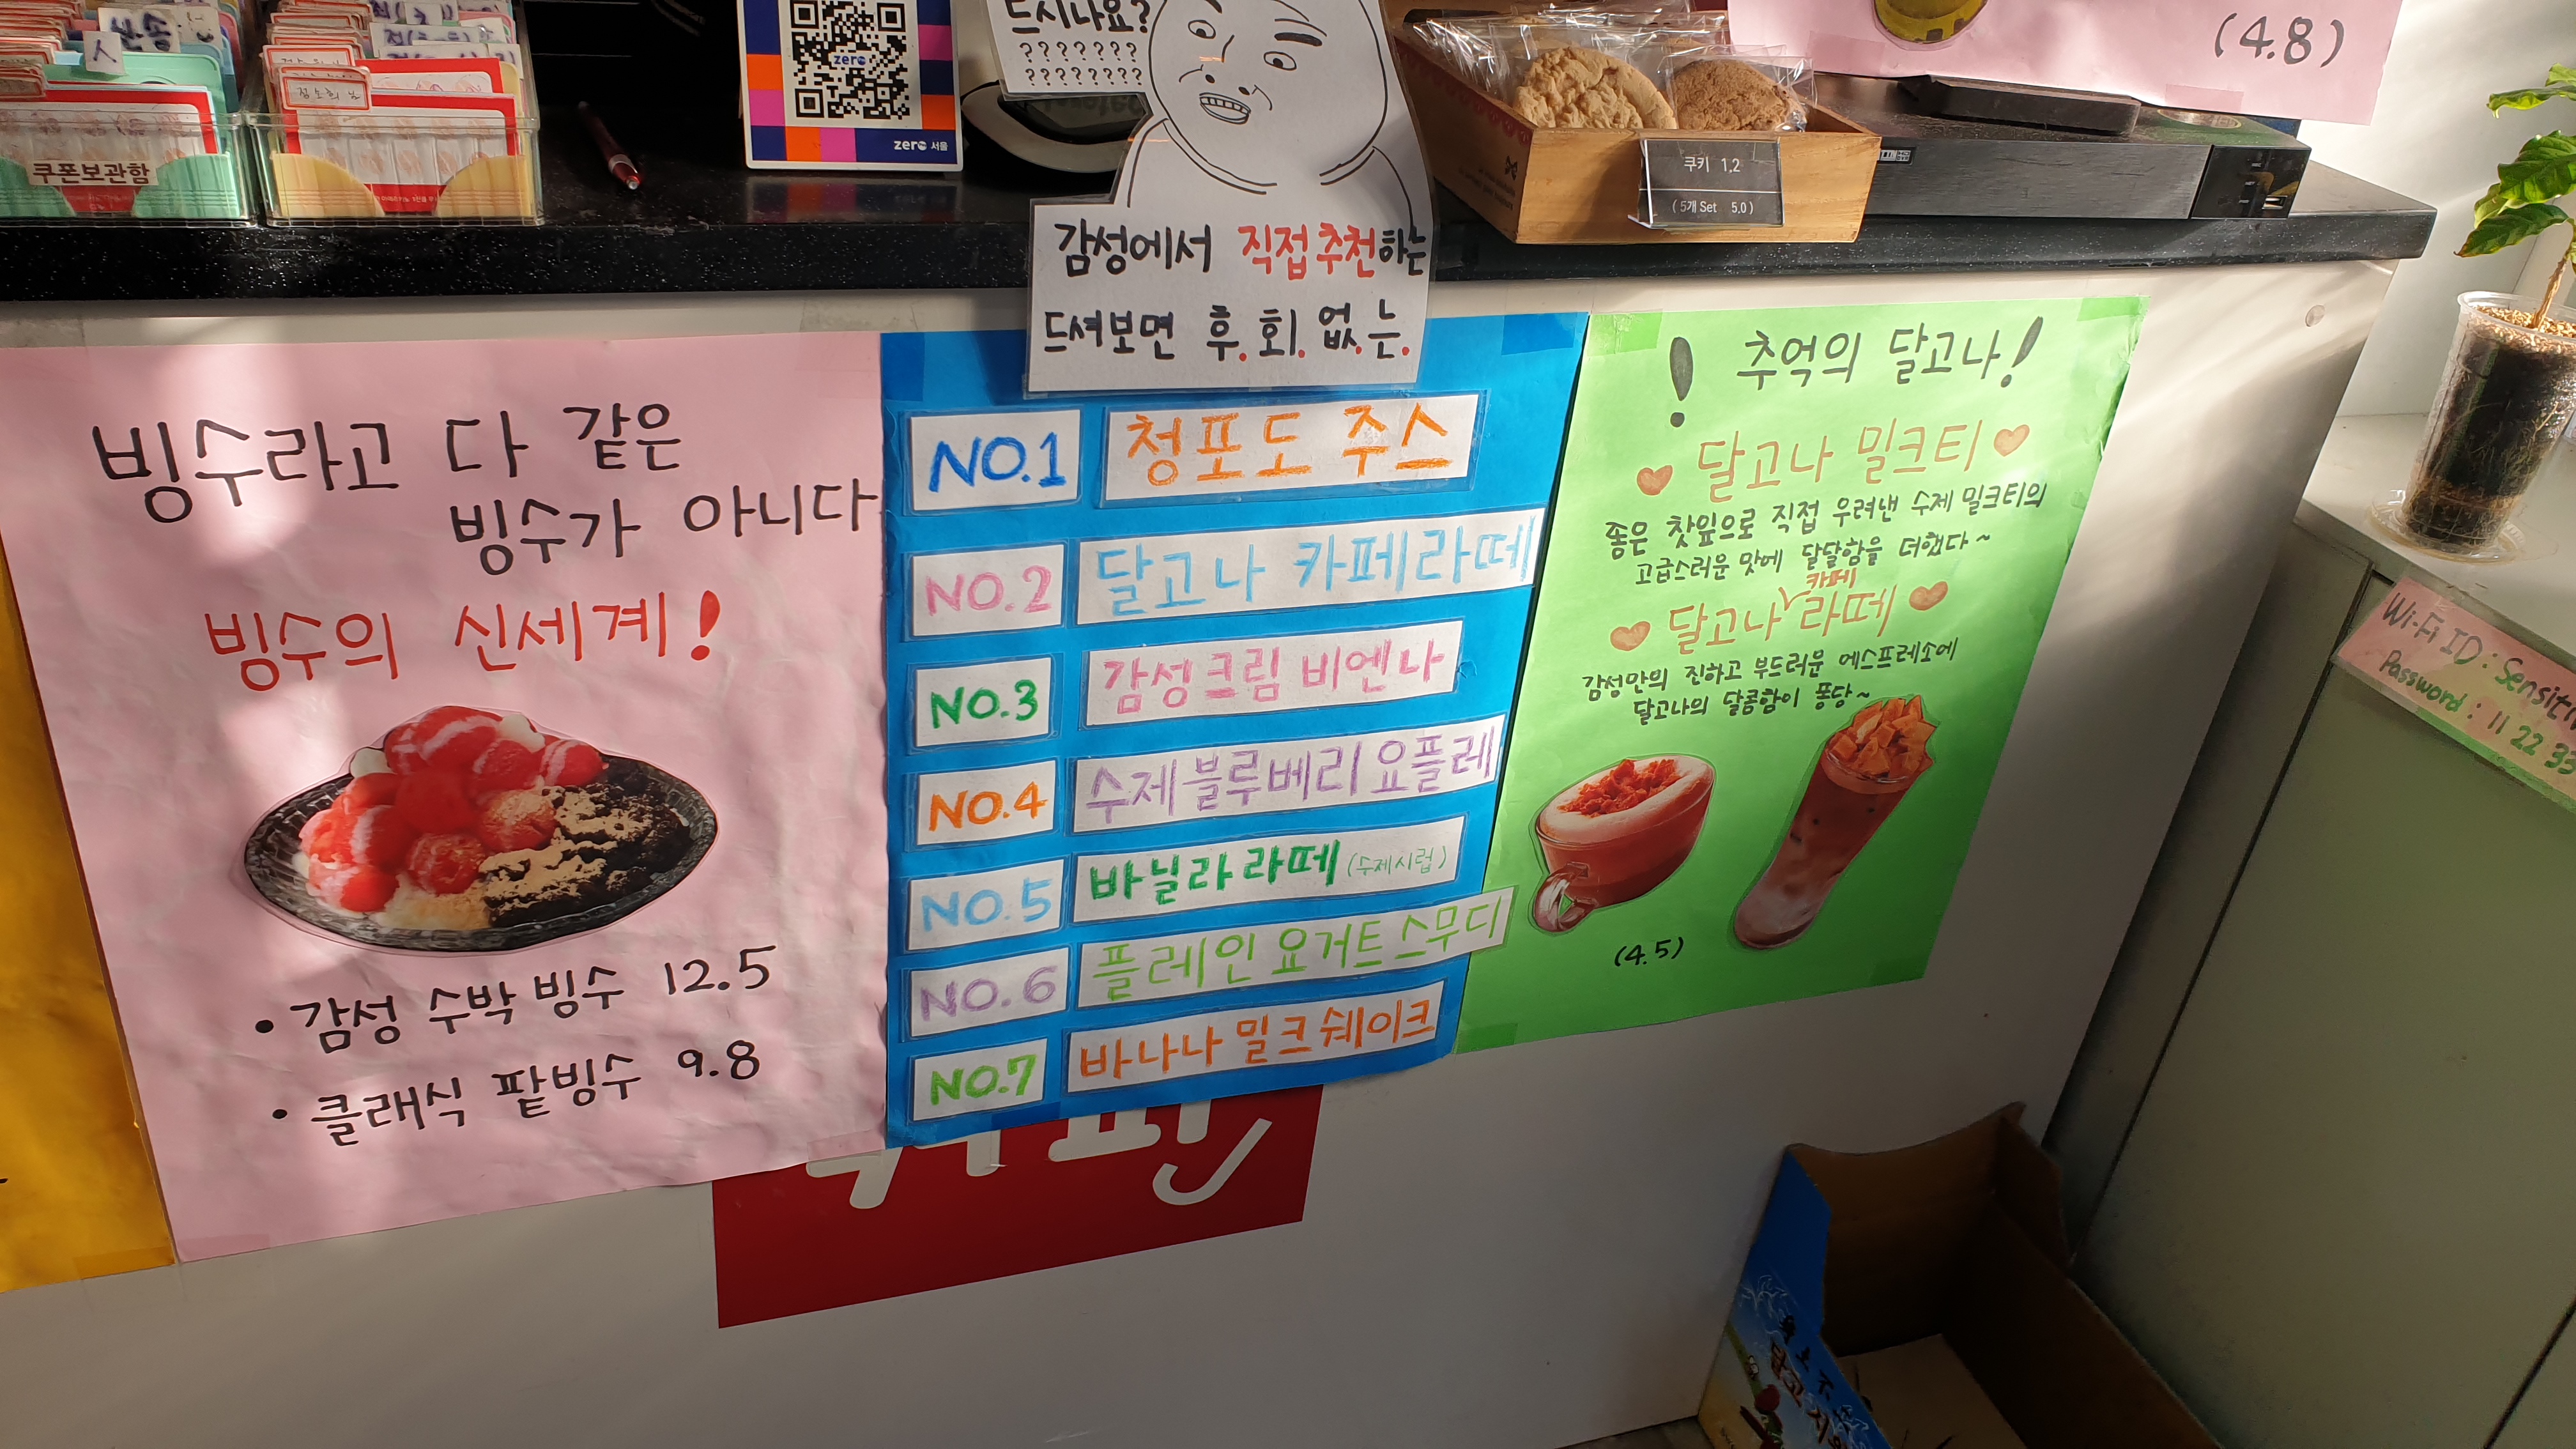 쿠폰보관함
zero
zero 서울
드시나요?
???????
????????
쿠키 1.2
(5개 Set 5.0)
(4.8)
감성에서 직접추천하는
드셔보면 후.회.없.는.
빙수라고 다 같은
빙수가 아니다
빙수의 신세계!
• 감성 수박 빙수 12.5
• 클래식 팥빙수 9.8
NO.1 청포도 주스
NO.2 달고나 카페라떼
NO.3 감성크림 비엔나
NO.4 수제블루베리 요플레
NO.5 바닐라 라떼 (수제시럽)
NO.6 플레인 요거트스무디
NO.7 바나나 밀크쉐이크
! 추억의 달고나!
달고나 밀크티
좋은 찻잎으로 직접 우려낸 수제 밀크티의
고급스러운 맛에 달달함을 더했다~
달고나 카페 라떼
감성만의 진하고 부드러운 에스프레소에
달고나의 달콤함이 퐁당~
(4.5)
Wi-Fi ID : Sensiti
Password : 11 22 33